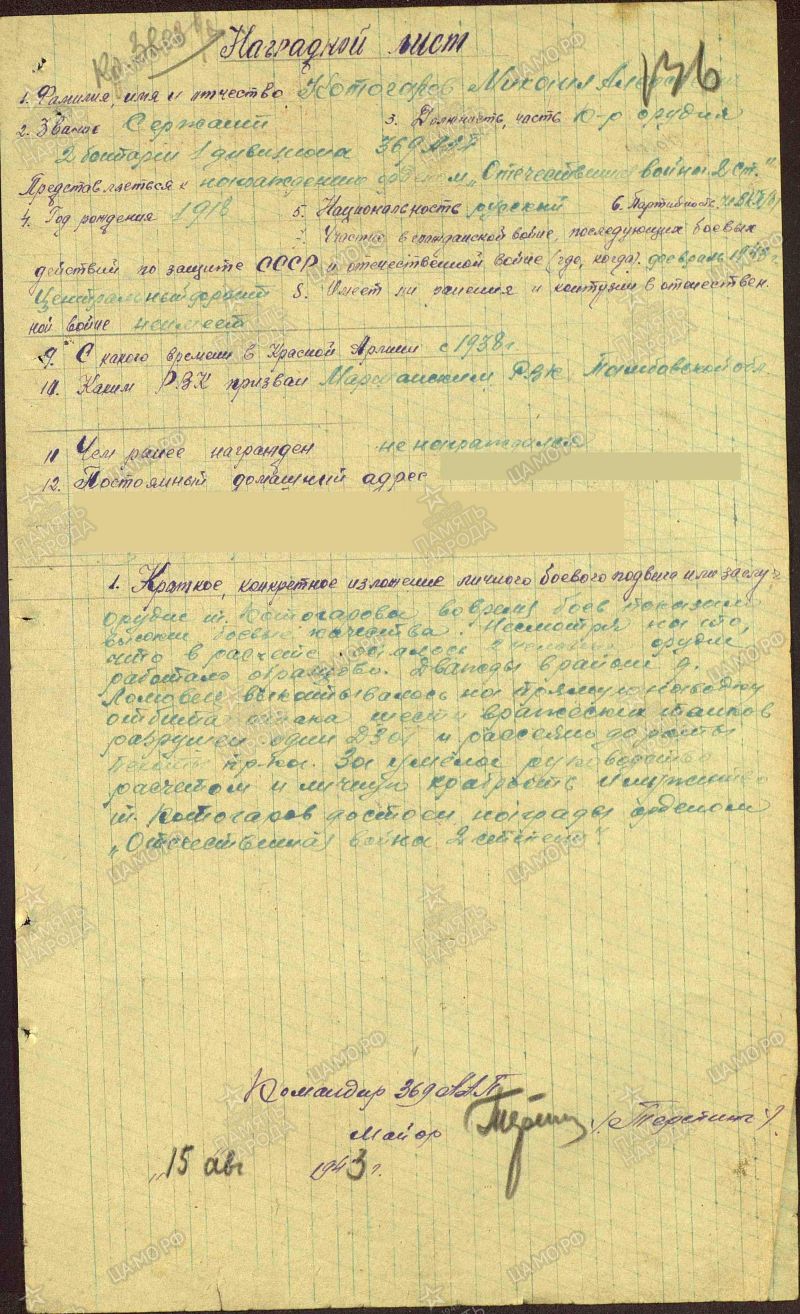 Кр. Звезда
136
Наградной лист
1. Фамилия, имя и отчество Котогаров Михаил
2. Звание Сержант 3. Должность, часть К-р орудия
2 батареи 1 дивизиона 369 ААП
Представляется к награждению орденом „Отечественная война 2 ст."
4. Год рождения 1918 5. Национальность русский 6. Партийность
Участие в гражданской войне, последующих боевых
действий по защите СССР и отечественной войне (где, когда). февраль 1943 г.
Центральный фронт 8. Имеет ли ранения и контузии в отечествен.
ной войне не имеет
9. С какого времени в Красной Армии с 1938 г
10. Каким РВК призван РВК Тамбовской обл.
11 Чем ранее награжден не награждался
12. Постоянный домашний адрес
1. Краткое, конкретное изложение личного боевого подвига или заслуг
орудие т. Котогарова во время боев показало
высокие боевые качества. Несмотря на то,
что в расчете осталось 2 человека орудие
работало образцово. Дважды в районе д.
Ломовец выкатывалось на прямую наводку
отбита атака шести вражеских танков
разрушен один ДЗОТ и рассеяно до роты
пехоты пр-ка. За умелое руководство
расчетом и личную храбрость и мужество
т. Котогаров достоин награды орденом
„Отечественная война 2 степени".
Командир 369 ААП
Майор /Терёшин/
„15 авг 1943 г.
ПАМЯТЬ НАРОДА
ЦАМО.РФ